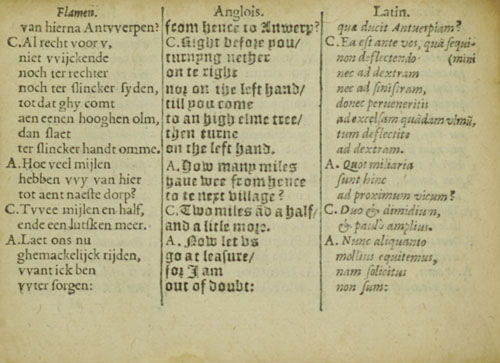 Flamen.
van hierna Antvverpen?
C.Al recht voor v,
niet vvijckende
noch ter rechter
noch ter slincker syden,
tot dat ghy comt
aen eenen hooghen olm,
dan slaet
ter slincker handt omme.
A.Hoe veel mijlen
hebben vvy van hier
tot aent naeste dorp?
C.Tvvee mijlen en half,
ende een lutsken meer.
A.Laet ons nu
ghemackelijck rijden,
vvant ick ben
vyter sorgen:
Anglois.
from hence to Anwerp?
C.Right before you/
turnyng nether
on te right
nor on the left hand/
till you come
to an high elme tree/
then turne
on the left hand.
A.How many miles
haue wee from hence
to te next village?
C.Two miles ād a half/
and a litle more.
A. Now let vs
go at leasure/
for I am
out of doubt:
Latin.
quæ ducit Antuerpiam?
C. Ea est ante vos, quā sequi-
non deflectendo (mini
nec ad dextram
nec ad sinistram,
donec perueneritis
ad excelsam quādam vlmū,
tum deflectite
ad dextram.
A. Quot miliaria
sunt hinc
ad proximum vicum?
C. Duo & dimidium,
& paulò amplius.
A. Nunc aliquanto
mollius equitemus,
nam solicitus
non sum: